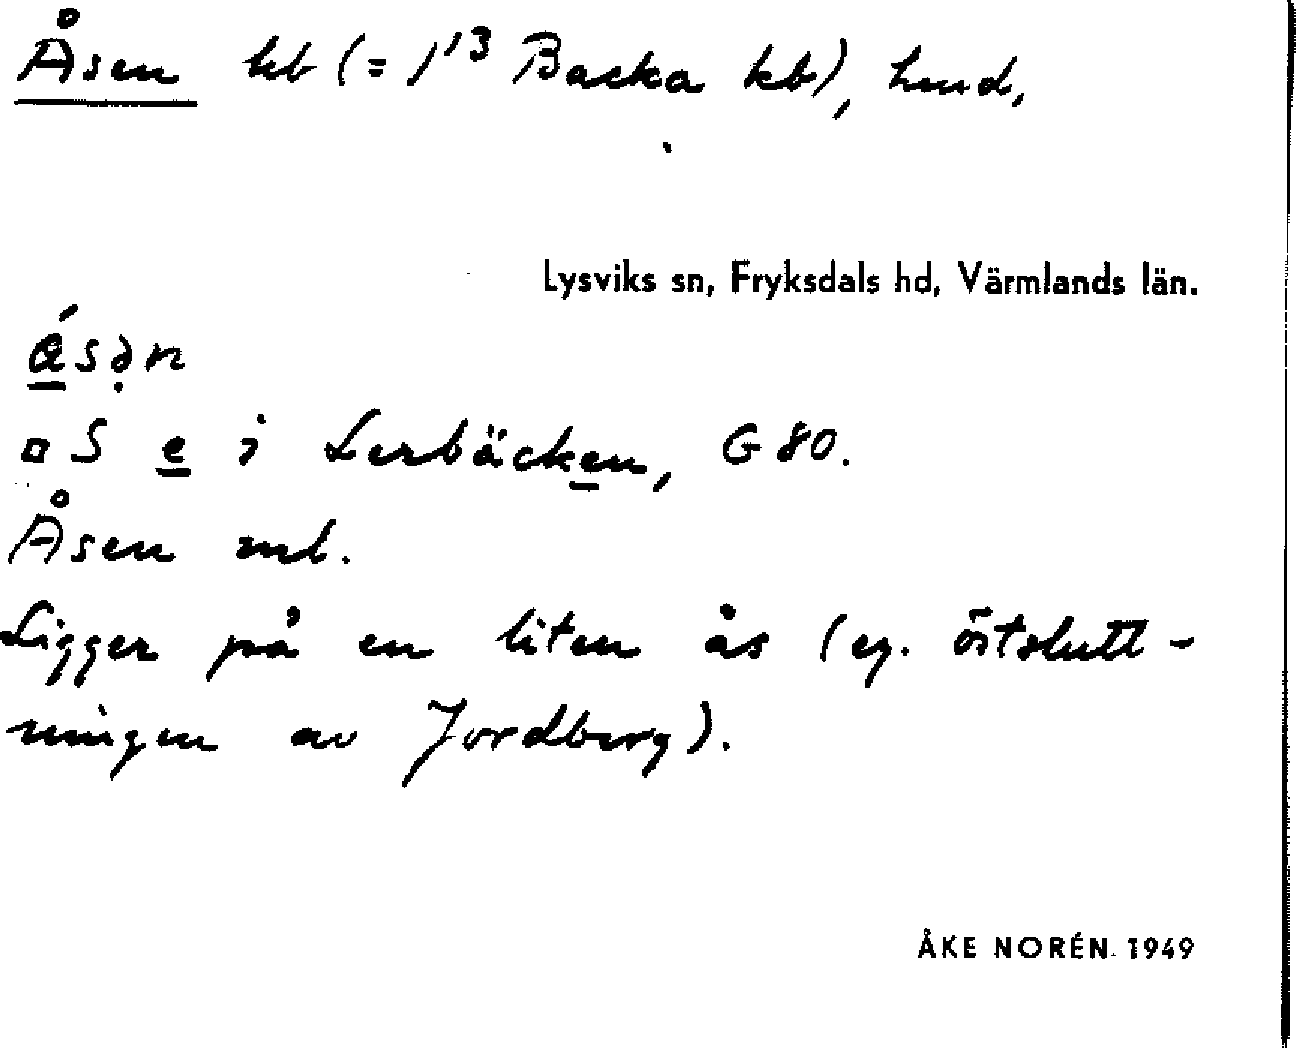 Åsen kb (= 1¹³ Backa kb), hmd,
Lysviks sn, Fryksdals hd, Värmlands län.
ǻsə̣n
¤ S e i Lerbäcken, G 80.
Åsen mb.
Ligger på en liten ås (eg. östslutt-
ningen av Jordberg).
ÅKE NORÉN 1949